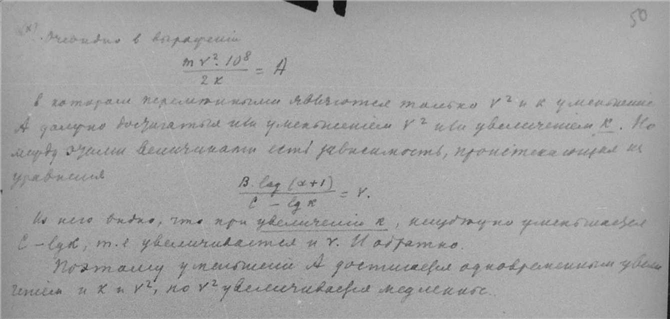 50
(x) Очевидно в выраженiи
m v². 10⁸ / 2к = A
в котором переменными являются только v² и к уменьшенiе
А должно достигаться или уменьшенiем v² или увеличенiем к. Но
между этими величинами есть зависимость, проистекающая из
уравнения
B. log (x+1) / C – lg к = v.
Из него видно, что при увеличенiе к, уменьшается
C – lgк, т.е увеличивается и v. И обратно.
Поэтому уменьшенiе А достигается одновременным увели
чением и к и v², но v² увеличивается медленнее.